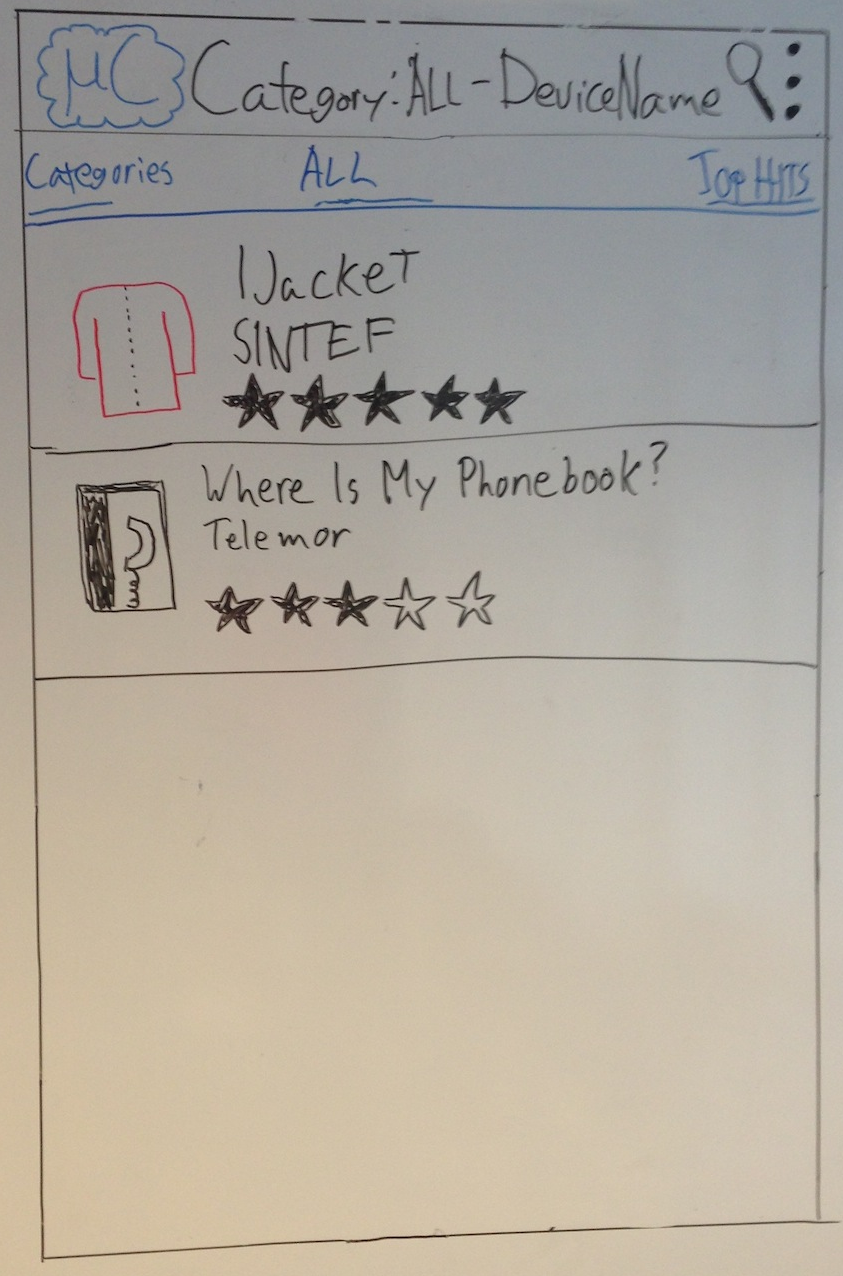 μC Category: ALL - DeviceName
Categories ALL Top Hits
IJacket
SINTEF
Where Is My Phonebook?
Telemor